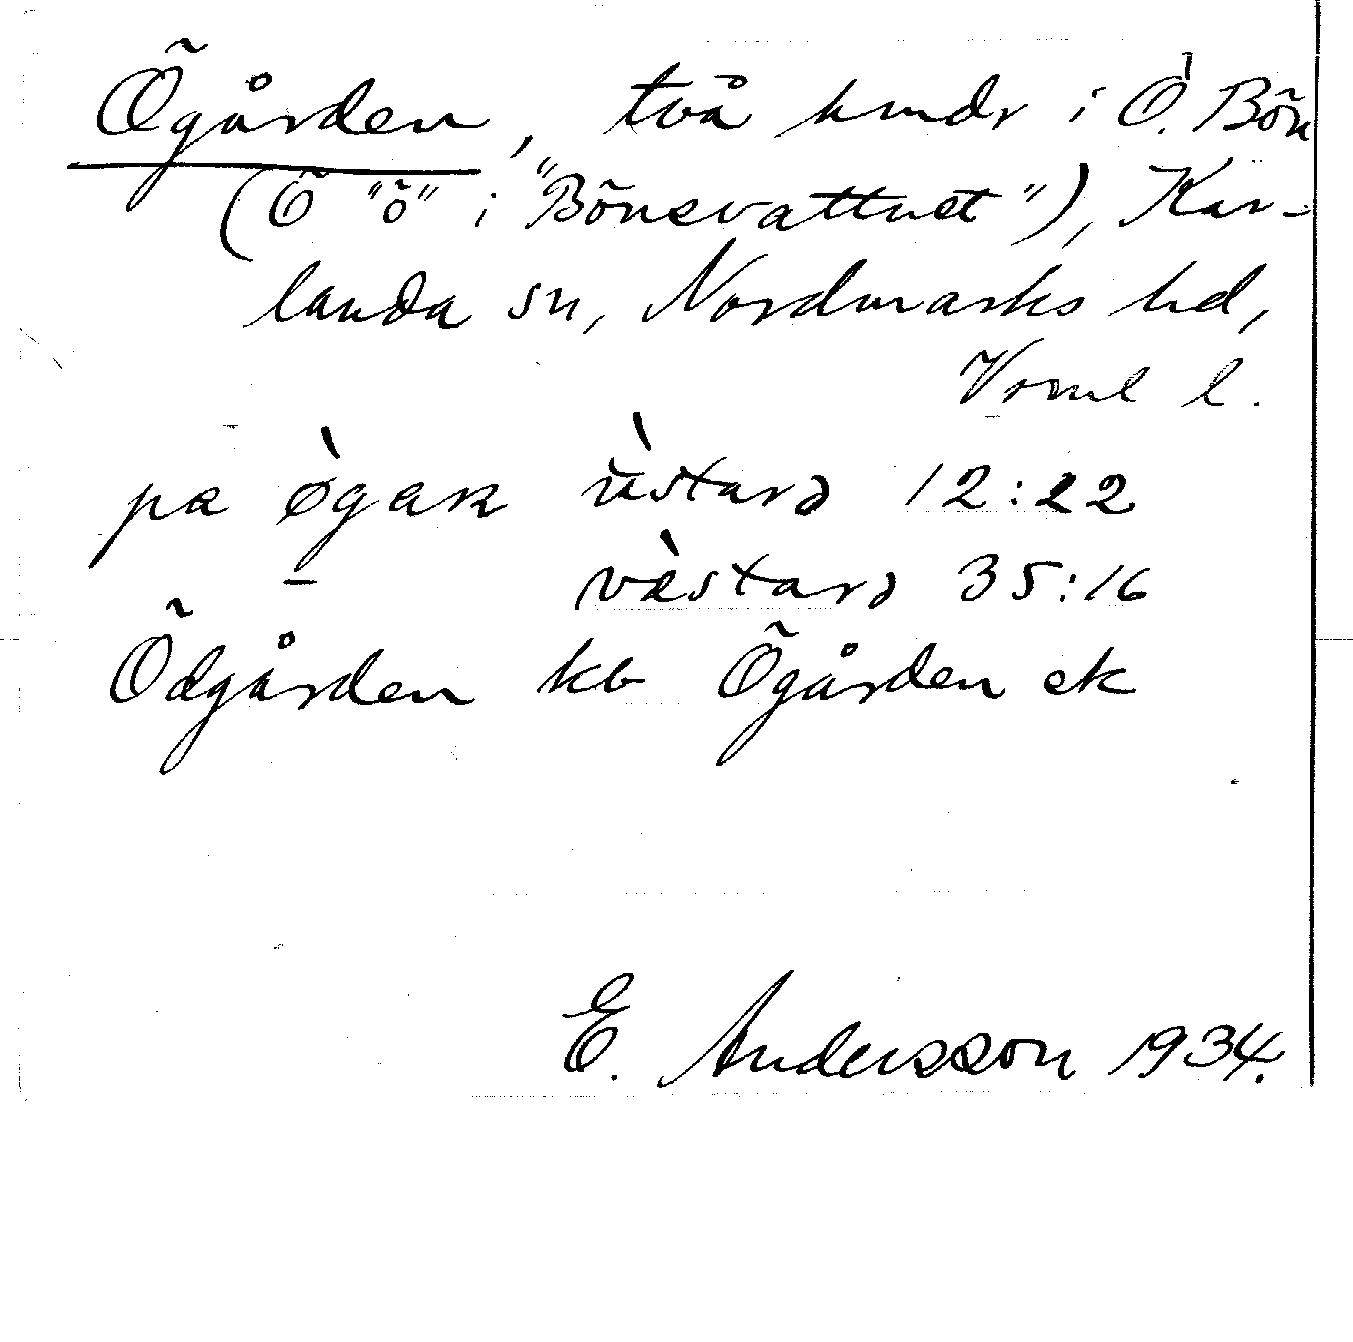 Õgården, två hmdr i Ö. Bõn
(Õ "õ" i "Bõnsvattnet"), Kar-
landa sn, Nordmarks hd,
Vrml l.
pa øgaʀ ùstarə 12:22
– vàstarə 35:16
Õdgården kb Õgården ek
E. Andersson 1934.